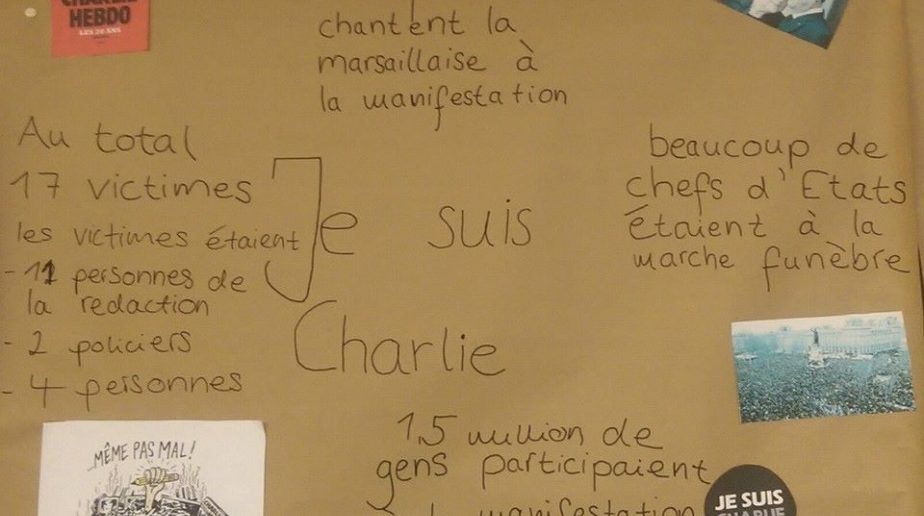 HEBDO
LES 20 ANS
chantent la
marsaillaise à
la manifestation
Au total
17 victimes
les victimes étaient
- 11 personnes de
la redaction
- 2 policiers
- 4 personnes
Je suis
Charlie
beaucoup de
chefs d'Etats
étaient à la
marche funèbre
MÊME PAS MAL!
1,5 million de
gens participaient
manifestation
JE SUIS
CHARLIE